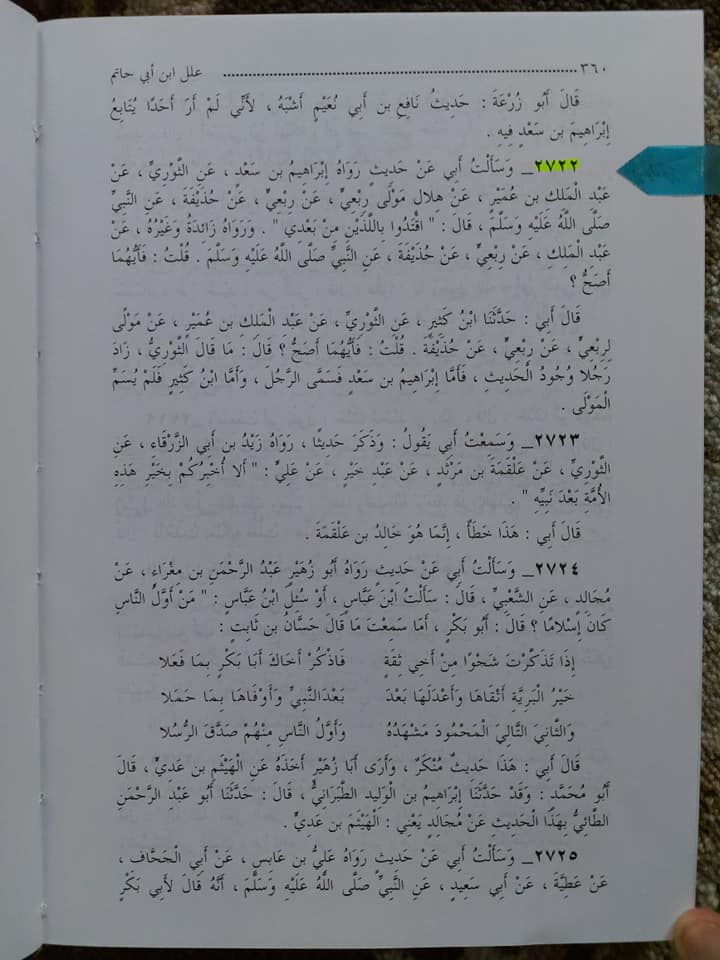 ٣٦٠ ........................................ علل ابن أبي حاتم
قَالَ أَبُو زُرْعَةَ : حَدِيثُ نَافِعِ بن أَبِي نُعَيْمٍ أَشْبَهُ ، لأَنِّي لَمْ أَرَ أَحَدًا يُتَابِعُ
إِبْرَاهِيمَ بن سَعْدٍ فِيهِ .
٢٧٢٢_ وَسَأَلْتُ أَبِي عَنْ حَدِيثٍ رَوَاهُ إِبْرَاهِيمُ بن سَعْدٍ ، عَنِ الثَّوْرِيِّ ، عَنْ
عَبْدِ الْمَلِكِ بن عُمَيْرٍ ، عَنْ هِلالٍ مَوْلَى رِبْعِيٍّ ، عَنْ رِبْعِيٍّ ، عَنْ حُذَيْفَةَ ، عَنِ النَّبِيِّ
صَلَّى اللَّهُ عَلَيْهِ وَسَلَّمَ ، قَالَ : " اقْتَدُوا بِاللَّذَيْنِ مِنْ بَعْدِي " . وَرَوَاهُ زَائِدَةُ وَغَيْرُهُ ، عَنْ
عَبْدِ الْمَلِكِ ، عَنْ رِبْعِيٍّ ، عَنْ حُذَيْفَةَ ، عَنِ النَّبِيِّ صَلَّى اللَّهُ عَلَيْهِ وَسَلَّمَ . قُلْتُ : فَأَيُّهُمَا
أَصَحُّ ؟
قَالَ أَبِي : حَدَّثَنَا ابْنُ كَثِيرٍ ، عَنِ الثَّوْرِيِّ ، عَنْ عَبْدِ الْمَلِكِ بن عُمَيْرٍ ، عَنْ مَوْلَى
لِرِبْعِيٍّ ، عَنْ رِبْعِيٍّ ، عَنْ حُذَيْفَةَ . قُلْتُ : فَأَيُّهُمَا أَصَحُّ ؟ قَالَ : مَا قَالَ الثَّوْرِيُّ ، زَادَ
رَجُلا وُجُودُ الْحَدِيثِ ، فَأَمَّا إِبْرَاهِيمُ بن سَعْدٍ فَسَمَّى الرَّجُلَ ، وَأَمَّا ابْنُ كَثِيرٍ فَلَمْ يُسَمِّ
الْمَوْلَى .
٢٧٢٣_ وَسَمِعْتُ أَبِي يَقُولُ : وَذَكَرَ حَدِيثًا ، رَوَاهُ زَيْدُ بن أَبِي الزَّرْقَاءِ ، عَنِ
الثَّوْرِيِّ ، عَنْ عَلْقَمَةَ بن مَرْثَدٍ ، عَنْ عَبْدِ خَيْرٍ ، عَنْ عَلِيٍّ : " أَلا أُخْبِرُكُمْ بِخَيْرِ هَذِهِ
الأُمَّةِ بَعْدَ نَبِيِّهِ " .
قَالَ أَبِي : هَذَا خَطَأٌ ، إِنَّمَا هُوَ خَالِدُ بن عَلْقَمَةَ .
٢٧٢٤_ وَسَأَلْتُ أَبِي عَنْ حَدِيثٍ رَوَاهُ أَبُو زُهَيْرٍ عَبْدُ الرَّحْمَنِ بن مِغْرَاءَ ، عَنْ
مُجَالِدٍ ، عَنِ الشَّعْبِيِّ ، قَالَ : سَأَلْتُ ابْنَ عَبَّاسٍ ، أَوْ سُئِلَ ابْنُ عَبَّاسٍ : " مَنْ أَوَّلُ النَّاسِ
كَانَ إِسْلامًا ؟ قَالَ : أَبُو بَكْرٍ ، أَمَا سَمِعْتَ مَا قَالَ حَسَّانُ بن ثَابِتٍ :
إِذَا تَذَكَّرْتَ شَحْوًا مِنْ أَخِي ثِقَةٍ فَاذْكُرْ أَخَاكَ أَبَا بَكْرٍ بِمَا فَعَلا
خَيْرُ الْبَرِيَّةِ أَتْقَاهَا وَأَعْدَلَهَا بَعْدَ بَعْدَالنَّبِيِّ وَأَوْفَاهَا بِمَا حَمَلا
وَالثَّانِيَ التَّالِيَ الْمَحْمُودَ مَشْهَدُهُ وَأَوَّلُ النَّاسِ مِنْهُمْ صَدَّقَ الرُّسُلا
قَالَ أَبِي : هَذَا حَدِيثٌ مُنْكَرٌ ، وَأَرَى أَبَا زُهَيْرٍ أَخَذَهُ عَنِ الْهَيْثَمِ بن عَدِيٍّ ، قَالَ
أَبُو مُحَمَّدٍ : وَقَدْ حَدَّثَنَا إِبْرَاهِيمُ بن الْوَلِيدِ الطَّبَرَانِيُّ ، قَالَ : حَدَّثَنَا أَبُو عَبْدِ الرَّحْمَنِ
الطَّائِيُّ بِهَذَا الْحَدِيثِ عَنْ مُجَالِدٍ يَعْنِي : الْهَيْثَمَ بن عَدِيٍّ .
٢٧٢٥_ وَسَأَلْتُ أَبِي عَنْ حَدِيثٍ رَوَاهُ عَلِيُّ بن عَابِسٍ ، عَنْ أَبِي الْجَحَّافِ ،
عَنْ عَطِيَّةَ ، عَنْ أَبِي سَعِيدٍ ، عَنِ النَّبِيِّ صَلَّى اللَّهُ عَلَيْهِ وَسَلَّمَ ، أَنَّهُ قَالَ لأَبِي بَكْرٍ